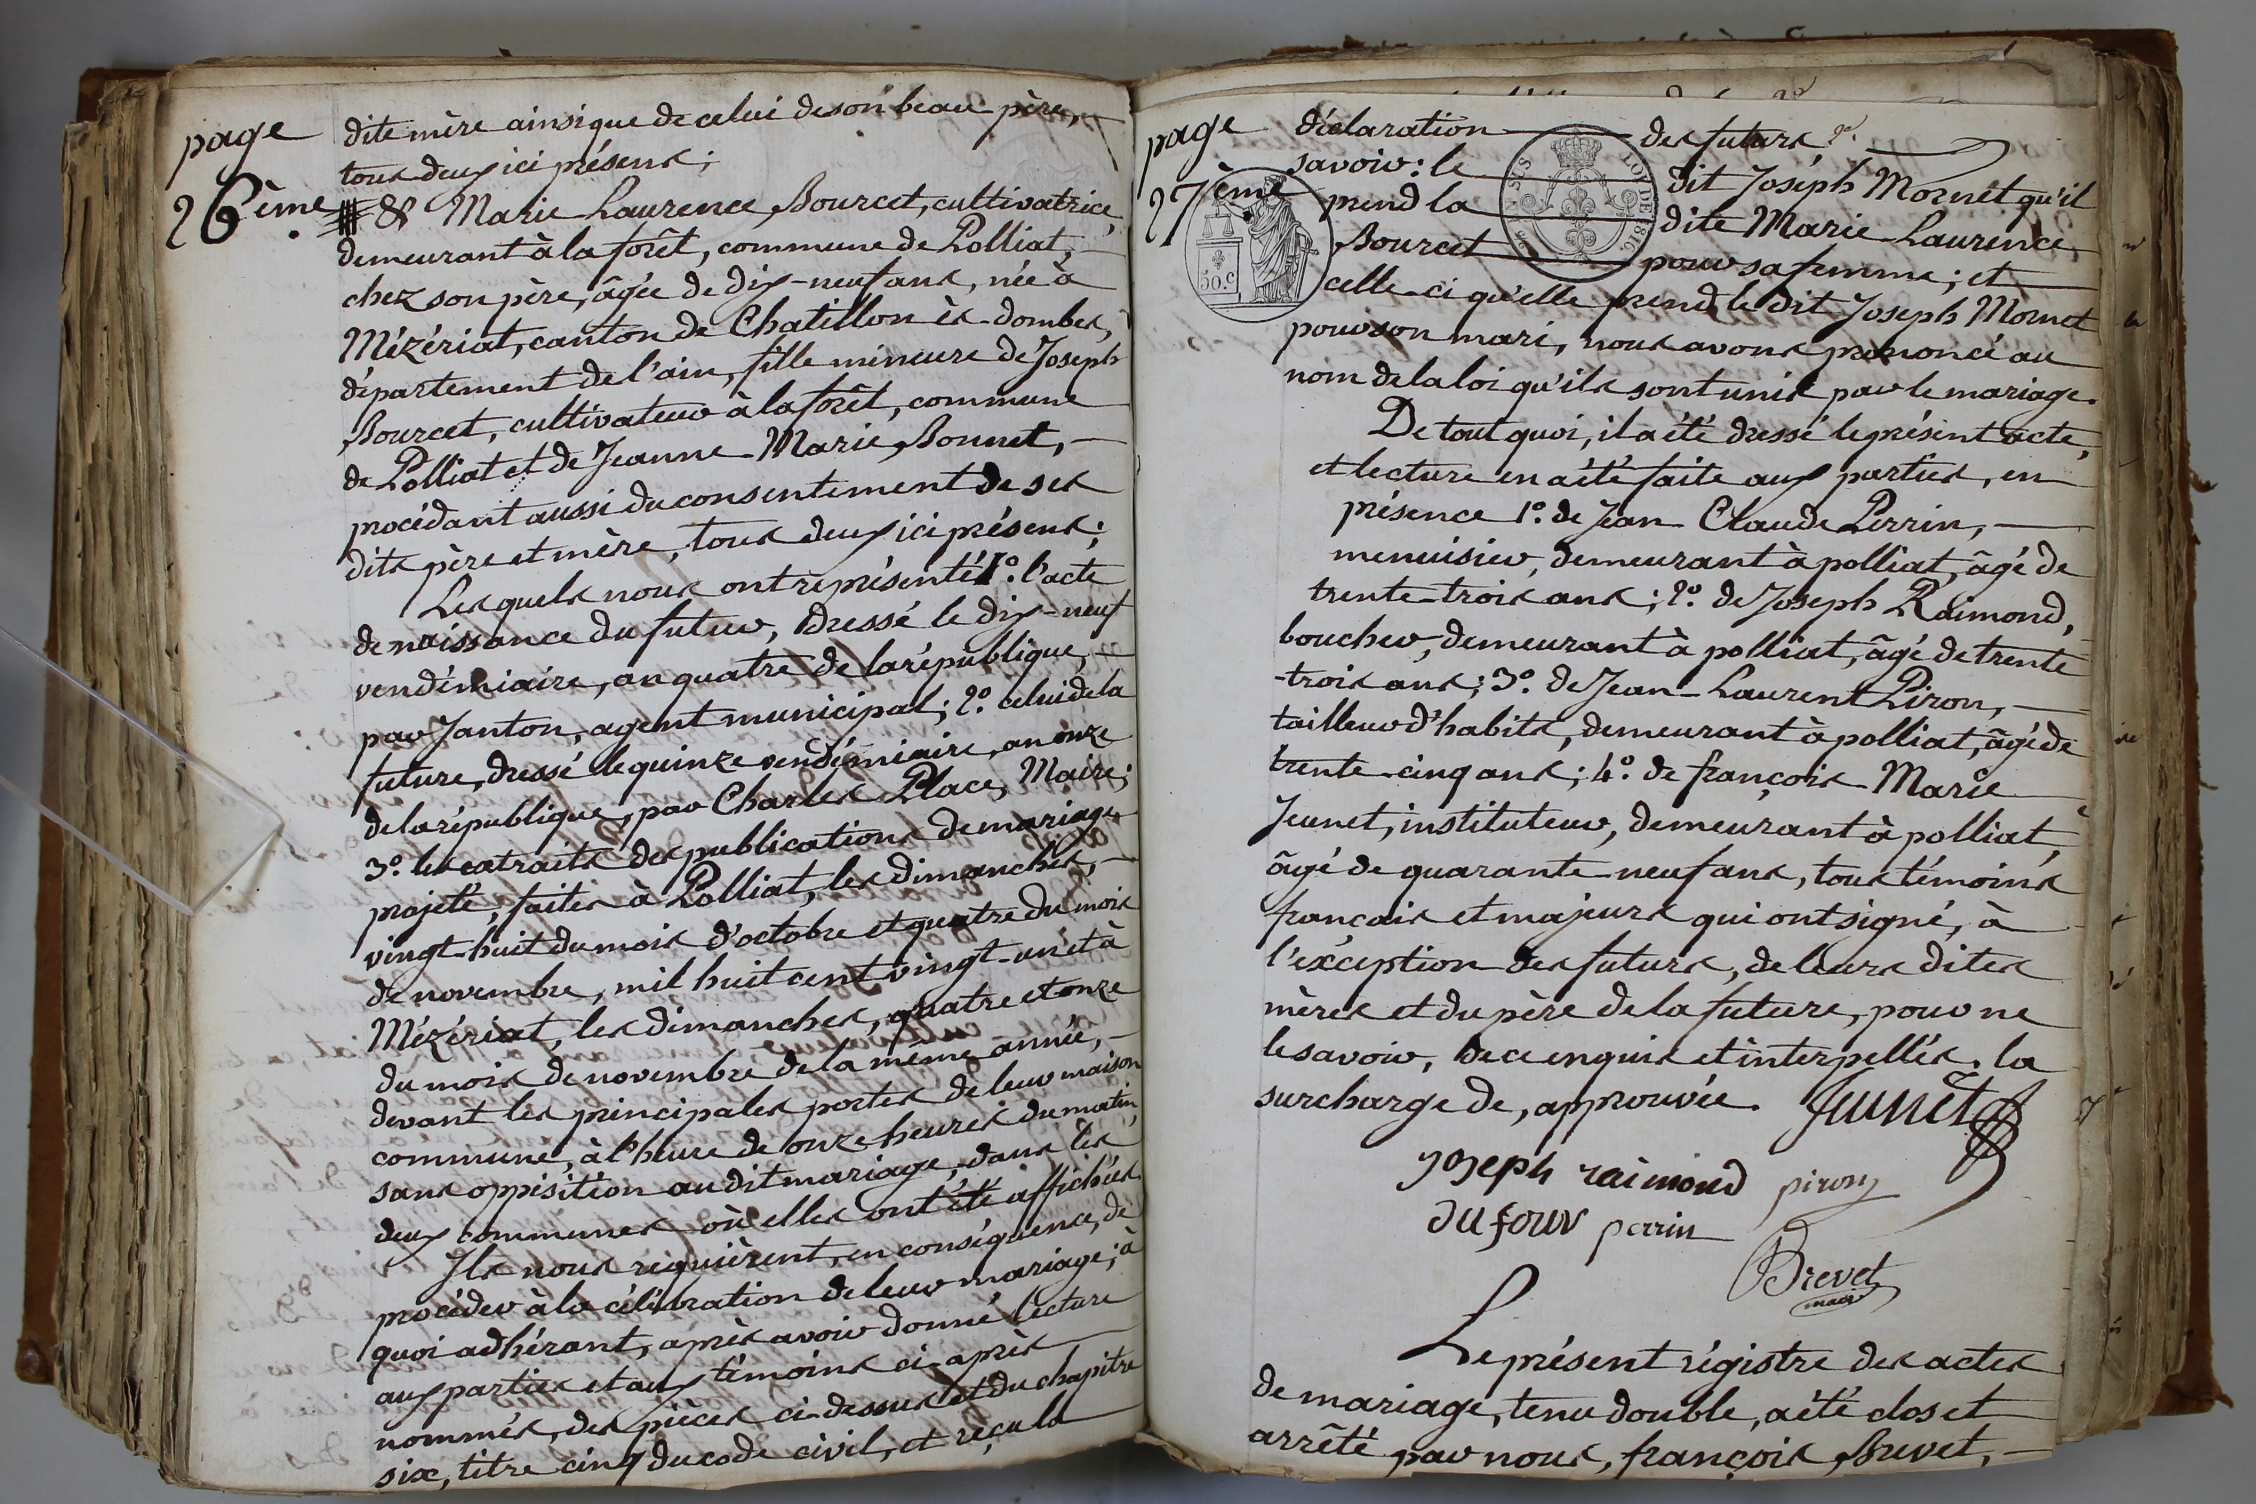 page
26ème
dite mère ainsi que de celui de son beau père,
tous deux ici présens;
& Marie Laurence Bourcet, cultivatrice,
demeurant à la forêt, commune de Polliat,
chez son père, âgée de dix-neuf ans, née à
Mézériat, canton de Chatillon ès-dombes,
département de l'ain, fille mineure de Joseph
Bourcet, cultivateur à la forêt, commune
de Polliat et de Jeanne Marie Bonnet,
procédant aussi du consentement de ses
dits père et mère, tous deux ici présens;
Les quels nous ont représenté 1º. l'acte
de naissance du futur, dressé le dix-neuf
vendémiaire, an quatre de la république,
par Janton, agent municipal; 2º. celui de la
future, dressé le quinze vendémiaire, an onze
de la république, par Charles Place, Maire;
3º. les extraits des publications de mariage
projeté, faites à Polliat, les dimanches,
vingt-huit du mois d'octobre et quatre du mois
de novembre, mil huit cent vingt-un et à
Mézériat, les dimanches, quatre et onze
du mois de novembre de la même année,
devant les principales portes de leur maison
commune, à l'heure de onze heures du matin,
sans oppisition au dit mariage, dans les
deux communes où elles ont été affichées.
Ils nous requièrent, en conséquence, de
procéder à la célébration de leur mariage; à
quoi adhérant, après avoir donné lecture
aux parties et aux témoins ci-après
nommés, des pièces ci-dessus et du chapitre
six, titre cinq du code civil, et reçu la
page
27ème
déclaration des futurs
savoir: le dit Joseph Mornet qu'il
prend la dite Marie Laurence
Bourcet pour sa femme; et
celle-ci qu'elle prend le dit Joseph Mornet
pour son mari, nous avons prononcé au
nom de la loi qu'ils sont unis par le mariage.
De tout quoi, il a été dressé le présent acte,
et lecture en a été faite aux parties, en
présence 1º. de Jean Claude Perrin,
menuisier, demeurant à polliat, âgé de
trente-trois ans; 2º. de Joseph Raimond,
boucher, demeurant à polliat, âgé de trente
-trois ans; 3º. de Jean-Laurent Piron,
tailleur d'habits, demeurant à polliat, âgé de
trente-cinq ans; 4º. de françois Marie
Jeunet, instituteur, demeurant à polliat,
âgé de quarante-neuf ans, tous témoins
français et majeurs qui ont signé, à
l'éxception des futurs, de leurs dites
mères et du père de la future, pour ne
le savoir, de ce enquis et interpellés. la
surcharge de, approuvée. Jeunet
joseph raimond piron
dufour perrin
Brevet
maire
Le présent régistre des actes
de mariage, tenu double, a été clos et
arrêté par nous, françois Brevet,
50.C
LOI DE 1816